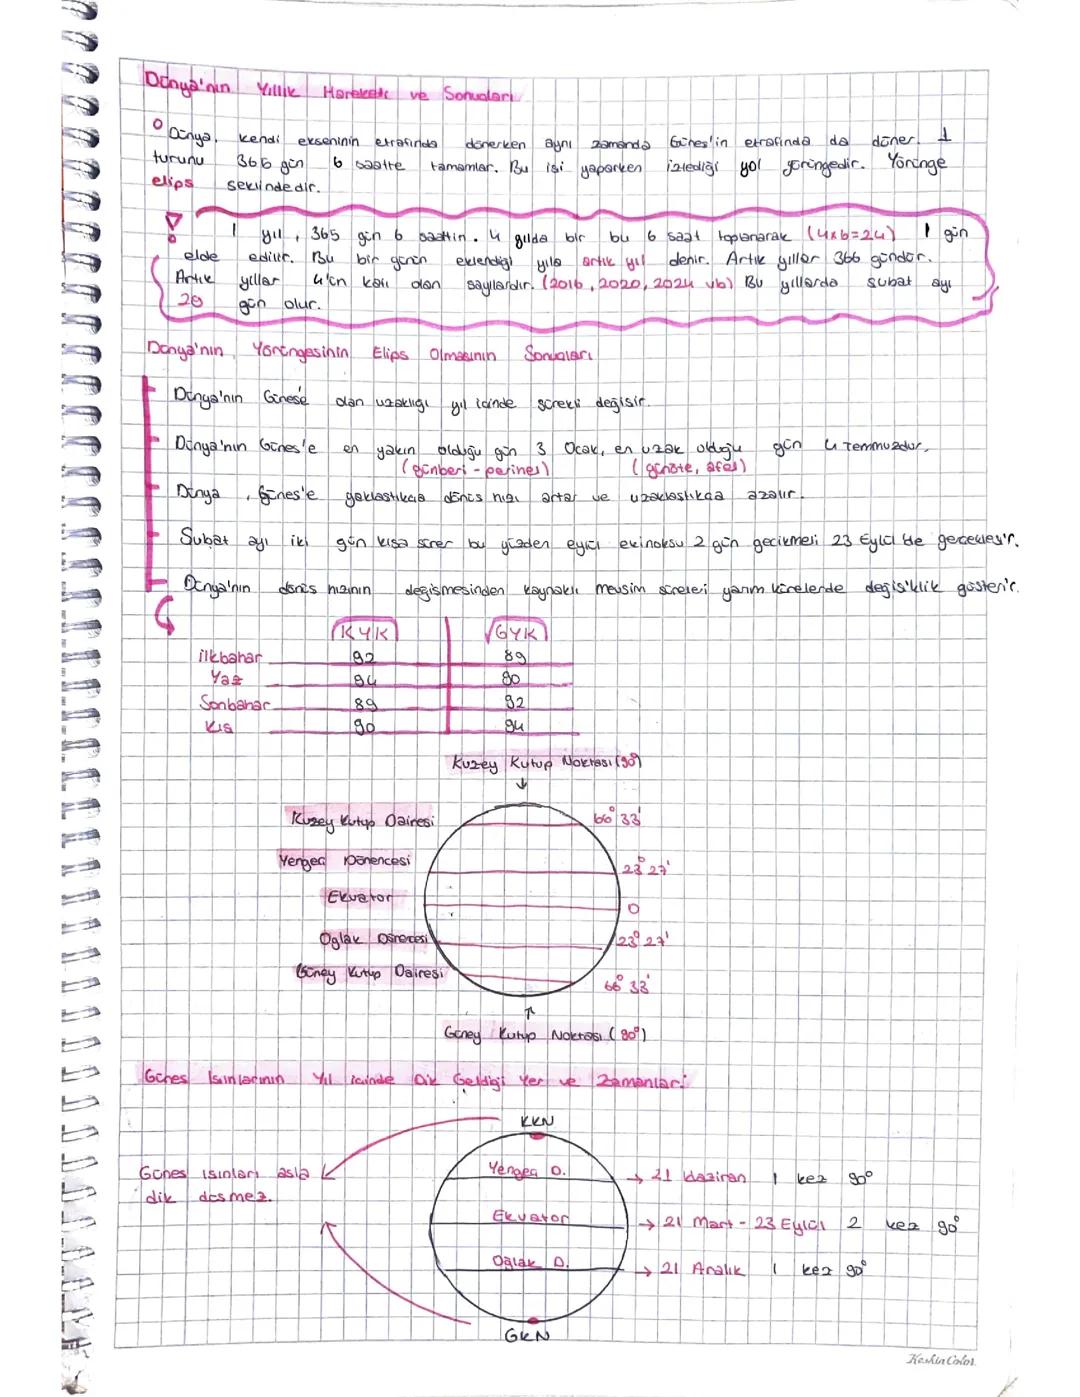 Dünya'nın Yıllık Hareketi ve Sonuçları
Dünya, kendi ekseninin etrafında dönerken aynı zamanda Güneş'in etrafında da döner. 1
turunu 366 gün 6 saatte tamamlar. Bu işi yaparken izlediği yol yörüngedir. Yörünge
elips şeklindedir.
1 yıl, 365 gün 6 saattir. 4 yılda bir bu 6 saat toplanarak (4x6=24) 1 gün
elde edilir. Bu bir günün eklendiği yıla artık yıl denir. Artık yıllar 366 gündür.
Artık yıllar 4'ün katı olan sayılardır. (2016, 2020, 2024 vb) Bu yıllarda şubat ayı
28 gün olur.
Dünya'nın Yörüngesinin Elips Olmasının Sonuçları
Dünya'nın Güneşe olan uzaklığı yıl içinde sürekli değişir.
Dünya'nın Güneş'e en yakın olduğu gün 3 Ocak, en uzak olduğu gün 4 Temmuzdur.
(günberi - perihel) (günöte, afel)
Dünya, Güneş'e yaklaştıkça dönüş hızı artar ve uzaklaştıkça azalır.
Şubat ayı iki gün kısa sürer bu yüzden eylül ekinoksu 2 gün gecikmeli 23 Eylül'de gerçekleşir.
Dünya'nın dönüş hızının değişmesinden kaynaklı mevsim süreleri yarım kürelerde değişiklik gösterir.
KYK GYK
ilkbahar 92 89
Yaz 94 90
Sonbahar 89 92
Kış 90 94
Kuzey Kutup Noktası (90°)
Kuzey Kutup Dairesi 66° 33'
Yengeç Dönencesi 23° 27'
Ekvator 0
Oğlak Dönencesi 23° 27'
Güney Kutup Dairesi 66° 33'
Güney Kutup Noktası (90°)
Güneş Işınlarının Yıl içinde Dik Geldiği Yer ve Zamanları
KKN
Güneş ışınları asla
dik düşmez.
Yengeç D. → 21 Haziran 1 kez 90°
Ekvator → 21 Mart - 23 Eylül 2 kez 90°
Oğlak D. → 21 Aralık 1 kez 90°
GKN
KeskinColor